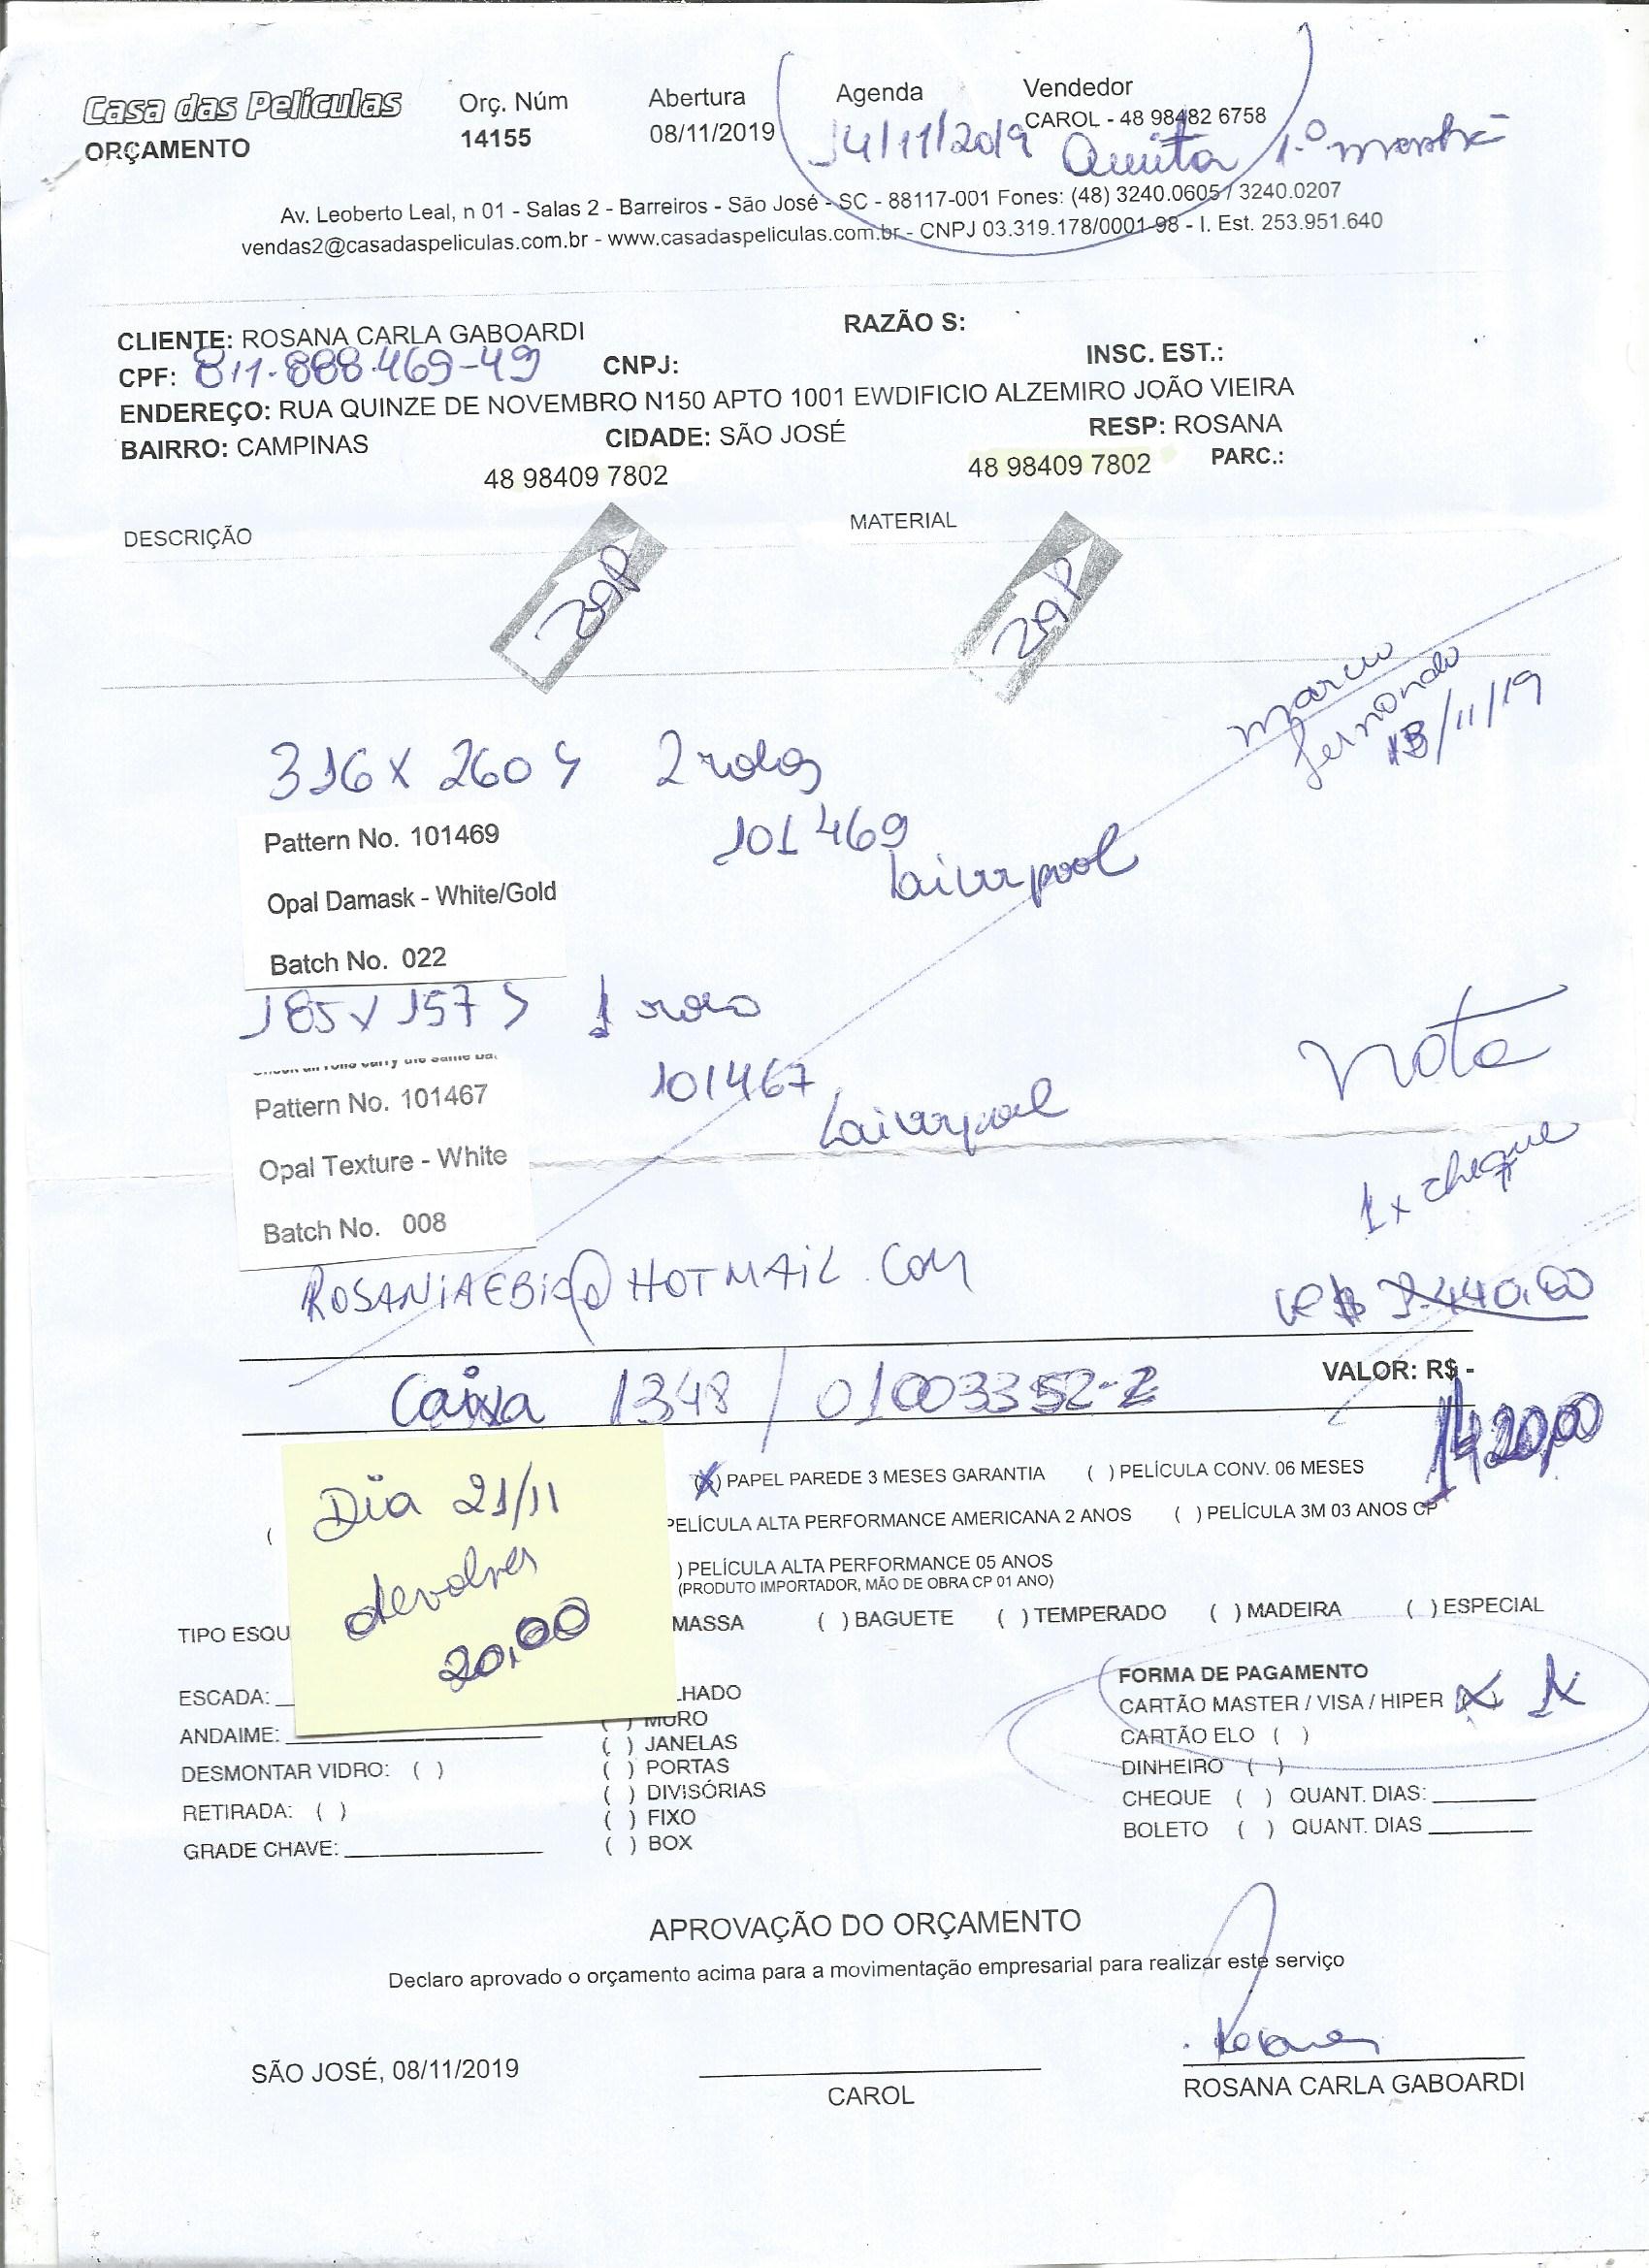 Casa das Películas Orç. Núm Abertura Agenda Vendedor
ORÇAMENTO 14155 08/11/2019 14/11/2019 CAROL - 48 98482 6758
Quinta 1.º
Av. Leoberto Leal, n 01 - Salas 2 - Barreiros - São José - SC - 88117-001 Fones: (48) 3240.0605 / 3240.0207
vendas2@casadaspeliculas.com.br - www.casadaspeliculas.com.br - CNPJ 03.319.178/0001-98 - I. Est. 253.951.640
CLIENTE: ROSANA CARLA GABOARDI RAZÃO S:
CPF: 811.888.469-49 CNPJ: INSC. EST.:
ENDEREÇO: RUA QUINZE DE NOVEMBRO N150 APTO 1001 EWDIFICIO ALZEMIRO JOÃO VIEIRA
BAIRRO: CAMPINAS CIDADE: SÃO JOSÉ RESP: ROSANA
48 98409 7802 48 98409 7802 PARC.:
DESCRIÇÃO MATERIAL
marcio
fernando
13/11/19
316 x 260 2 rolos
Pattern No. 101469 101469
Laiverpool
Opal Damask - White/Gold
Batch No. 022
185 x 157 1 rolo
101467
Pattern No. 101467 Laiverpool
Nota
Opal Texture - White
1x cheque
Batch No. 008
ROSANIAEBIQ@HOTMAIL.COM
VALOR: R$ -
Caixa 1348 / 01003352-2
1420,00
(X) PAPEL PAREDE 3 MESES GARANTIA ( ) PELÍCULA CONV. 06 MESES
( PELÍCULA ALTA PERFORMANCE AMERICANA 2 ANOS ( ) PELÍCULA 3M 03 ANOS CP
) PELÍCULA ALTA PERFORMANCE 05 ANOS
(PRODUTO IMPORTADOR, MÃO DE OBRA CP 01 ANO)
Dia 21/11
devolver
20,00
TIPO ESQU MASSA ( ) BAGUETE ( ) TEMPERADO ( ) MADEIRA ( ) ESPECIAL
FORMA DE PAGAMENTO
ESCADA: LHADO CARTÃO MASTER / VISA / HIPER (X) 1x
( ) MURO
ANDAIME: ( ) JANELAS CARTÃO ELO ( )
DESMONTAR VIDRO: ( ) ( ) PORTAS DINHEIRO ( )
( ) DIVISÓRIAS CHEQUE ( ) QUANT. DIAS:
RETIRADA: ( ) ( ) FIXO BOLETO ( ) QUANT. DIAS
GRADE CHAVE: ( ) BOX
APROVAÇÃO DO ORÇAMENTO
Declaro aprovado o orçamento acima para a movimentação empresarial para realizar este serviço
SÃO JOSÉ, 08/11/2019
CAROL
ROSANA CARLA GABOARDI